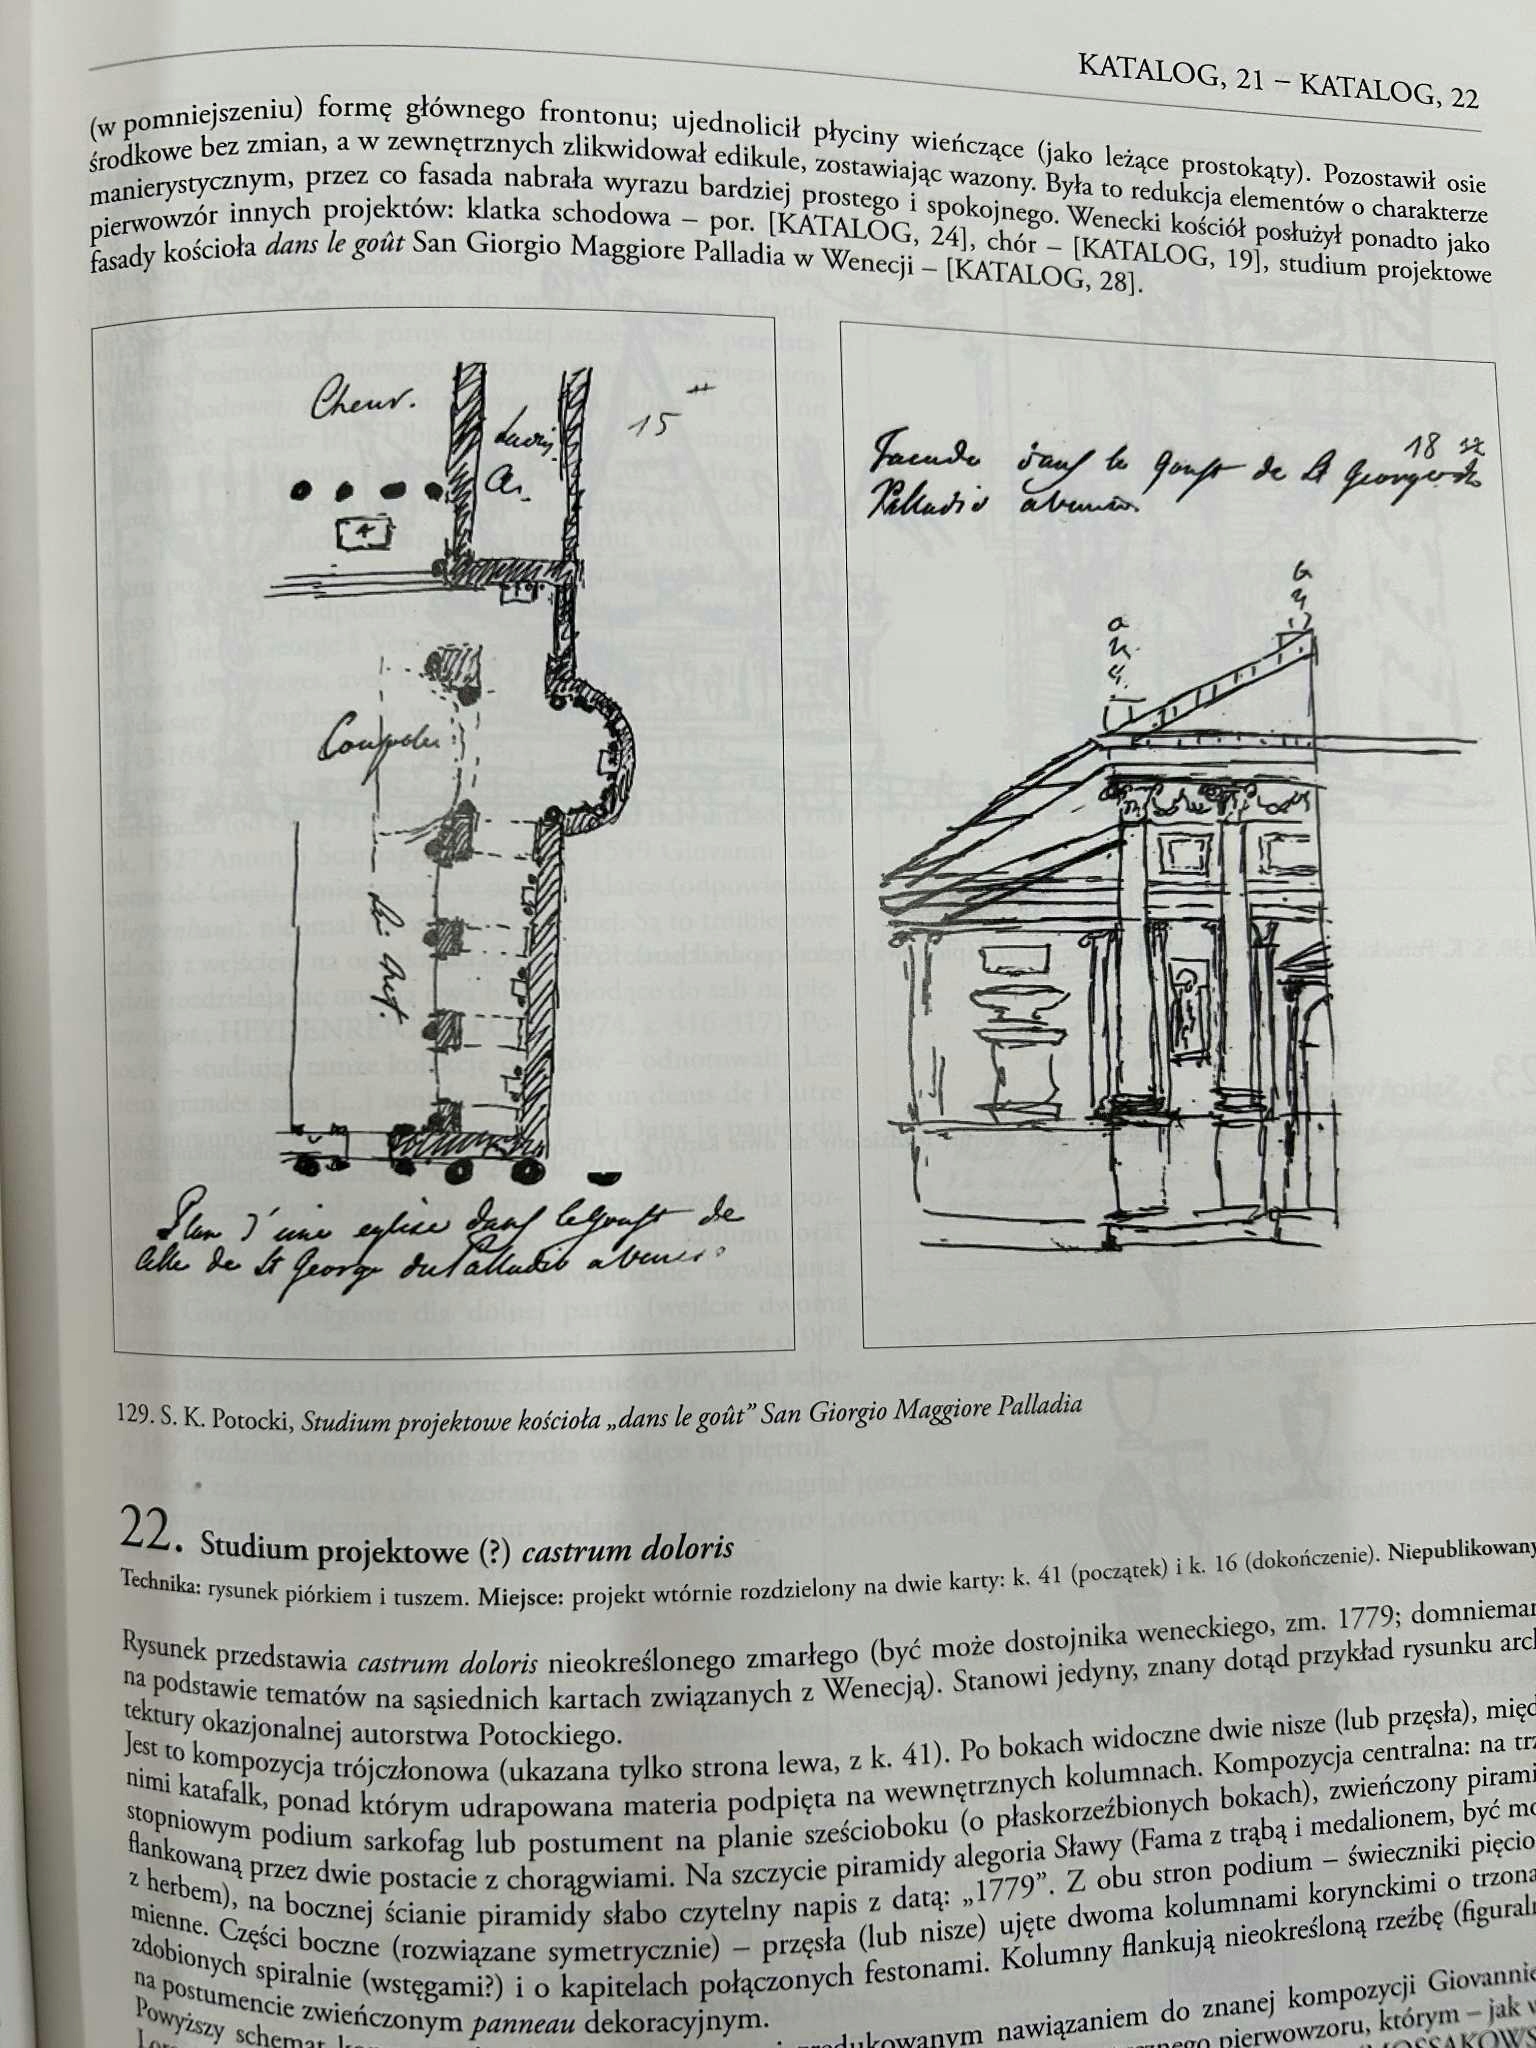 KATALOG, 21 – KATALOG, 22
(w pomniejszeniu) formę głównego frontonu; ujednolicił płyciny wieńczące (jako leżące prostokąty). Pozostawił osie
środkowe bez zmian, a w zewnętrznych zlikwidował edikule, zostawiając wazony. Była to redukcja elementów o charakterze
manierystycznym, przez co fasada nabrała wyrazu bardziej prostego i spokojnego. Wenecki kościół posłużył ponadto jako
pierwowzór innych projektów: klatka schodowa – por. [KATALOG, 24], chór – [KATALOG, 19], studium projektowe
fasady kościoła dans le goût San Giorgio Maggiore Palladia w Wenecji – [KATALOG, 28].
15
18
Facade dans le goust de St George de
Palladio a venise
Plan d'une eglise dans le goust de
celle de St George du Palladio a venise
129. S. K. Potocki, Studium projektowe kościoła „dans le goût” San Giorgio Maggiore Palladia
22. Studium projektowe (?) castrum doloris
Technika: rysunek piórkiem i tuszem. Miejsce: projekt wtórnie rozdzielony na dwie karty: k. 41 (początek) i k. 16 (dokończenie). Niepublikowany
Rysunek przedstawia castrum doloris nieokreślonego zmarłego (być może dostojnika weneckiego, zm. 1779; domnieman
na podstawie tematów na sąsiednich kartach związanych z Wenecją). Stanowi jedyny, znany dotąd przykład rysunku arch
tektury okazjonalnej autorstwa Potockiego.
Jest to kompozycja trójczłonowa (ukazana tylko strona lewa, z k. 41). Po bokach widoczne dwie nisze (lub przęsła), międ
nimi katafalk, ponad którym udrapowana materia podpięta na wewnętrznych kolumnach. Kompozycja centralna: na trz
stopniowym podium sarkofag lub postument na planie sześcioboku (o płaskorzeźbionych bokach), zwieńczony pirami
flankowaną przez dwie postacie z chorągwiami. Na szczycie piramidy alegoria Sławy (Fama z trąbą i medalionem, być mo
z herbem), na bocznej ścianie piramidy słabo czytelny napis z datą: „1779”. Z obu stron podium – świeczniki pięcio
mienne. Części boczne (rozwiązane symetrycznie) – przęsła (lub nisze) ujęte dwoma kolumnami korynckimi o trzona
zdobionych spiralnie (wstęgami?) i o kapitelach połączonych festonami. Kolumny flankują nieokreśloną rzeźbę (figuraln
na postumencie zwieńczonym panneau dekoracyjnym.
Powyższy schemat nawiązaniem do znanej kompozycji Giovannie
pierwowzoru, którym – jak w